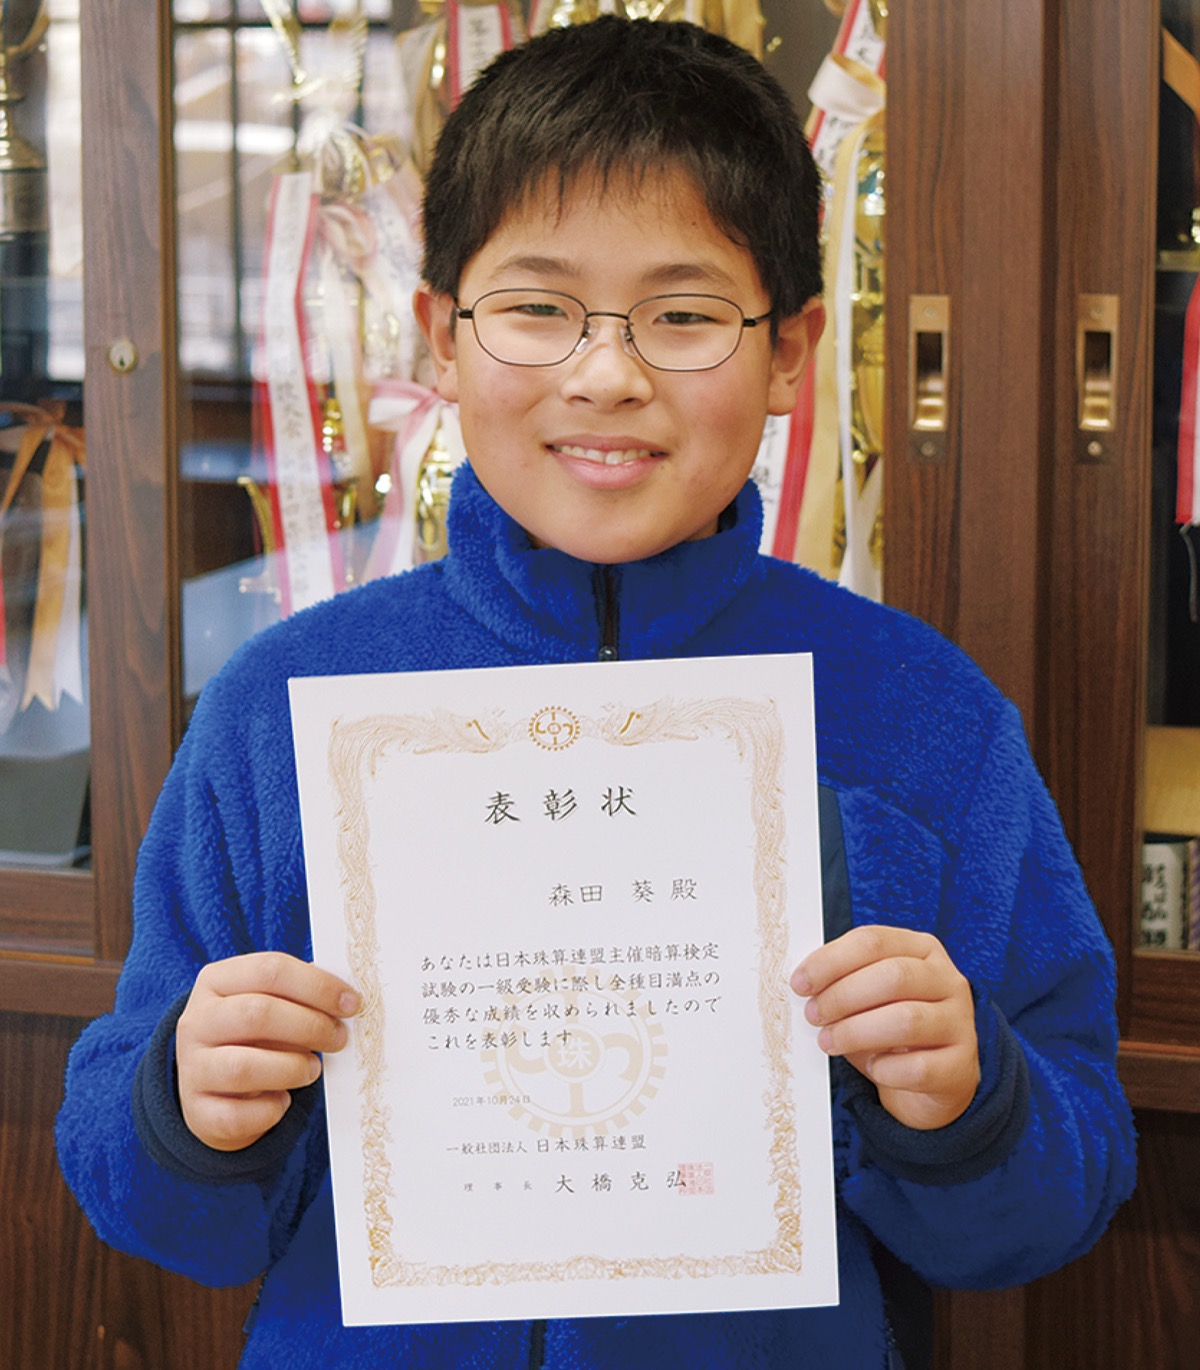 表彰状
森田 葵 殿
あなたは日本珠算連盟主催暗算検定
試験の一級受験に際し全種目満点の
優秀な成績を収められましたので
これを表彰します
珠
2021年10月24日
一般社団法人 日本珠算連盟
理事長 大橋克弘